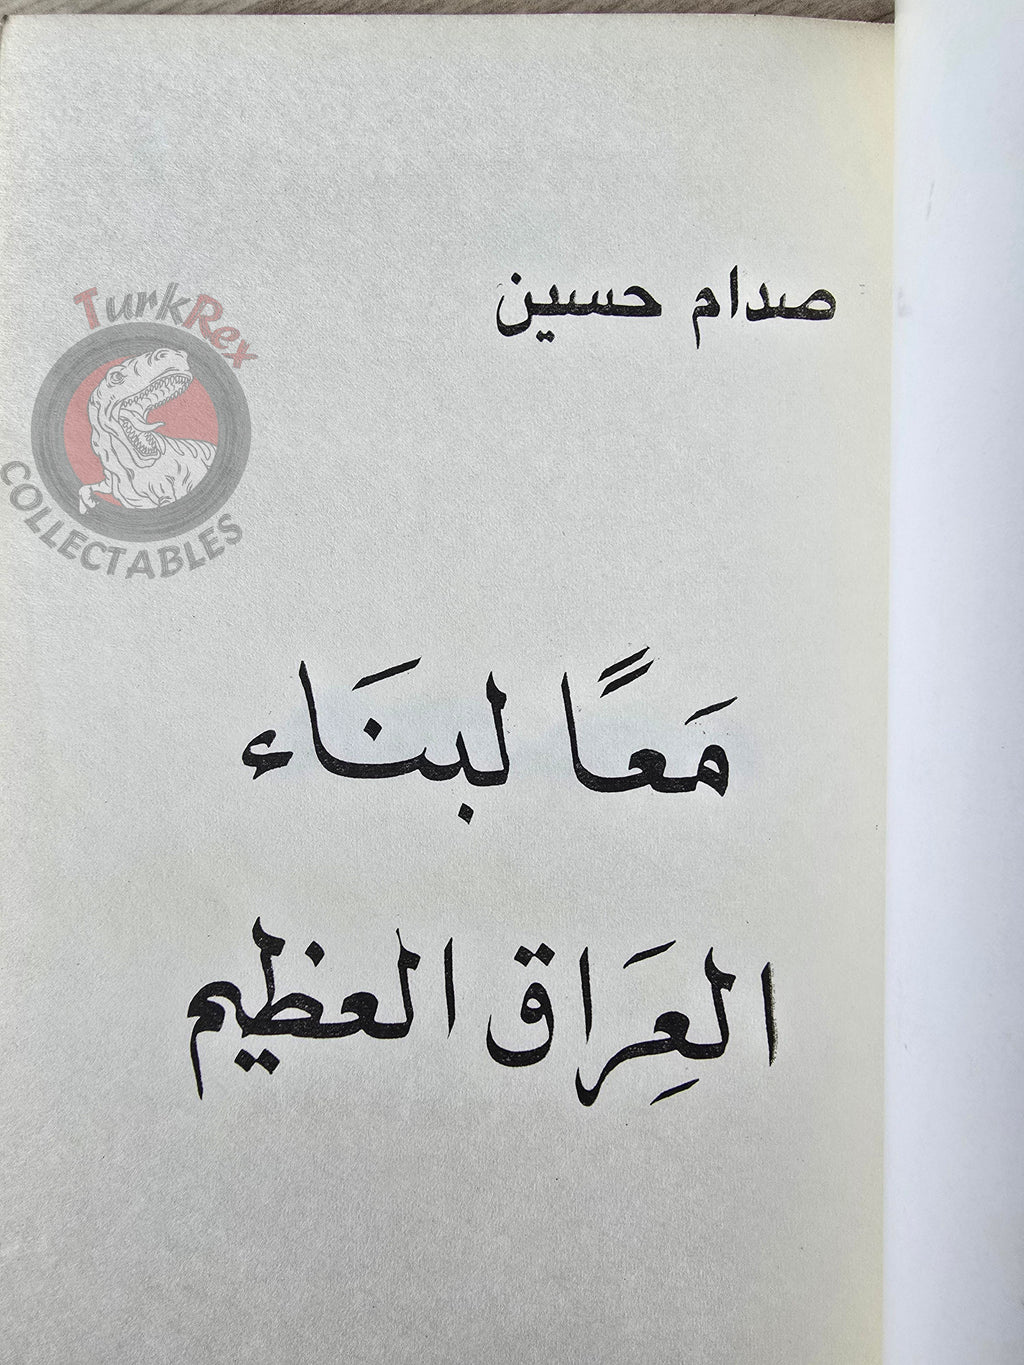 صدام حسين
TurkRex
COLLECTABLES
مَعًا لبنَاء
العِرَاق العظيم